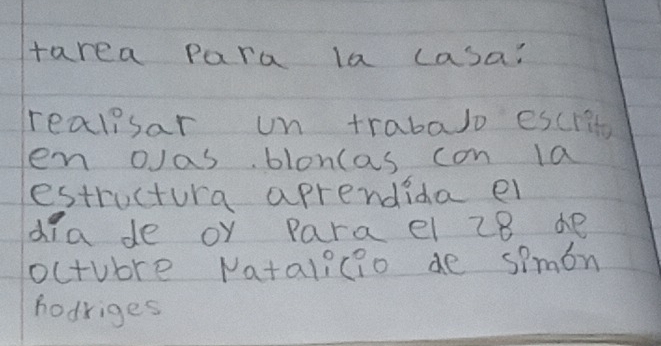 tarea para la casa:
realisar un trabajo escrito
en ojas bloncas con la
estructura aprendida el
día de oy para el 28 de
octubre Natalicio de simón
Rodriges